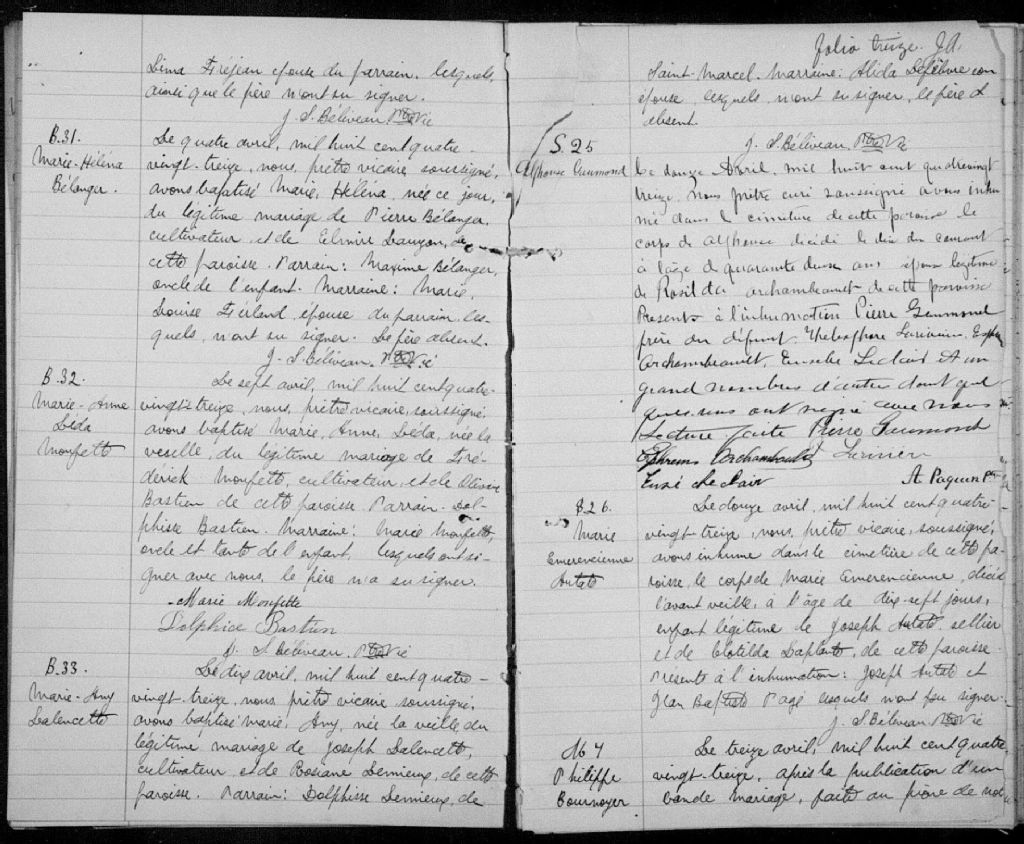 Lima Fréjean épouse du parrain, lesquels,
ainsi que le père n'ont su signer.
J. S. Béliveau, Ptre Vic
B.31.
Marie-Héléna
Bélanger.
Le quatre avril, mil huit cent quatre-
vingt-treize, nous, prêtre vicaire soussigné,
avons baptisé Marie, Héléna, née ce jour,
du légitime mariage de Pierre Bélanger,
cultivateur et de Elmire Lauzon, de
cette paroisse. Parrain: Maxime Bélanger,
oncle de l'enfant. Marraine: Marie,
Louise Ferland, épouse du parrain, les-
quels, n'ont su signer. Le père absent.
J. S. Béliveau, Ptre Vic
B.32.
Marie-Anne
Léda
Monfette
Le sept avril, mil huit cent quatre-
vingt-treize, nous, prêtre vicaire, soussigné
avons baptisé Marie, Anne, Léda, née la
veille, du légitime mariage de Fré-
dérick Monfette, cultivateur, et de Olivine
Bastien de cette paroisse. Parrain. Dol-
phisse Bastien. Marraine: Marie Monfette,
oncle et tante de l'enfant, lesquels ont si-
gner avec nous, le père n'a su signer.
Marie Monfette
Dolphice Bastien
J. S. Béliveau, Ptre Vic
B.33.
Marie-Any
Lalencette
Le dix avril, mil huit cent quatre-
vingt-treize, nous, prêtre vicaire, soussigné,
avons baptisé Marie, Any, née la veille du
légitime mariage de Joseph Lalencette,
cultivateur et de Rosiane Lemieux, de cette
paroisse. Parrain: Dolphisse Lemieux, de
Folio treize. J.A.
Saint-Marcel. Marraine: Alida Lefebvre son
épouse, lesquels n'ont su signer, le père
absent.
J. S. Béliveau, Ptre Vic
S. 25
Alphonse Guimond
Le douze Avril, mil huit cent quatrevingt
treize, Nous prêtre curé soussigné avons inhu
mé dans le cimetière de cette paroisse le
corps de Alphonse décédé le dix du courant
à l'âge de quarante deux ans époux légitime
de Rosilda Archambeault de cette paroisse
Présents à l'inhumation Pierre Guimond
frère du défunt, Thelesphore Larivière, Ephre
Archambeault, Eusebe Leclair et un
grand nombres d'autres dont quel
ques-uns ont signé avec nous
Lecture faite Pierre Guimond
Ephrem Archambault
Euzé Le clair A. Paquin Ptre
S.26.
Marie
Emerencienne
Autote
Le douze avril, mil huit cent quatre-
vingt-treize, nous, prêtre vicaire, soussigné,
avons inhumé dans le cimetière de cette pa-
roisse, le corps de Marie Emerencienne, décéd
l'avant veille, à l'âge de dix-sept jours,
enfant légitime de Joseph Autote, sellier
et de Clotilda Laplante, de cette paroisse.
Présents à l'inhumation: Joseph Autote et
Jean Baptiste Pagé lesquels n'ont su signer.
J. S. Béliveau Ptre Vic
M 7
Philippe
Bournoyer
Le treize avril, mil huit cent quatre
vingt-treize, après la publication d'un
ban de mariage, faite au prône de not